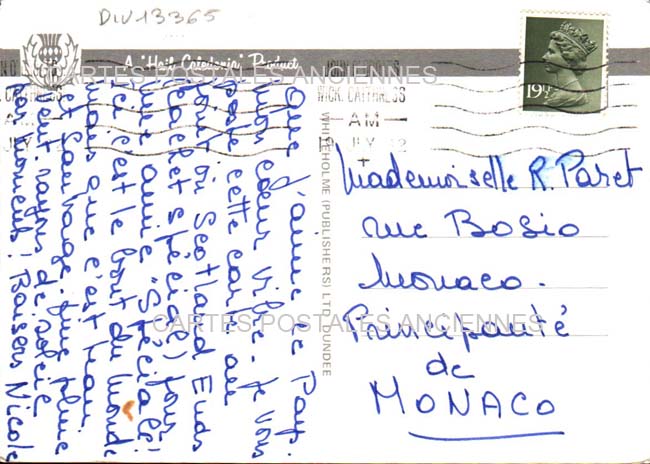 DIV13365
A "Hail Caledonia" Product
CARTES POSTALES ANCIENNES
JOHN O'GROATS
WICK, CAITHNESS
AM
JLY
19½
WHITEHOLME (PUBLISHERS) LTD. DUNDEE
que j'aime ce Pays.
mon cœur vibre. Je vous
poste cette carte au
bout du Scotland Ends
(cachet spécial) pour
une amie "Spéciale!
ici c'est le bout du monde
mais que c'est beau
et sauvage. fine pluie
vent rayons de soleil
par moments! Baisers Nicole
Mademoiselle R. Paret
rue Bosio
Monaco.
Principauté
de
MONACO
CARTES POSTALES ANCIENNES